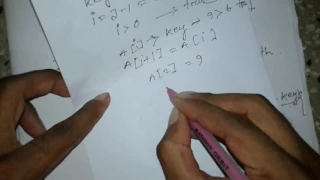 i = 2-1 =
i > 0 → true 9 > 6
A[i] > key
A[i+1] = A[i]
A[2] = 9
th.
key